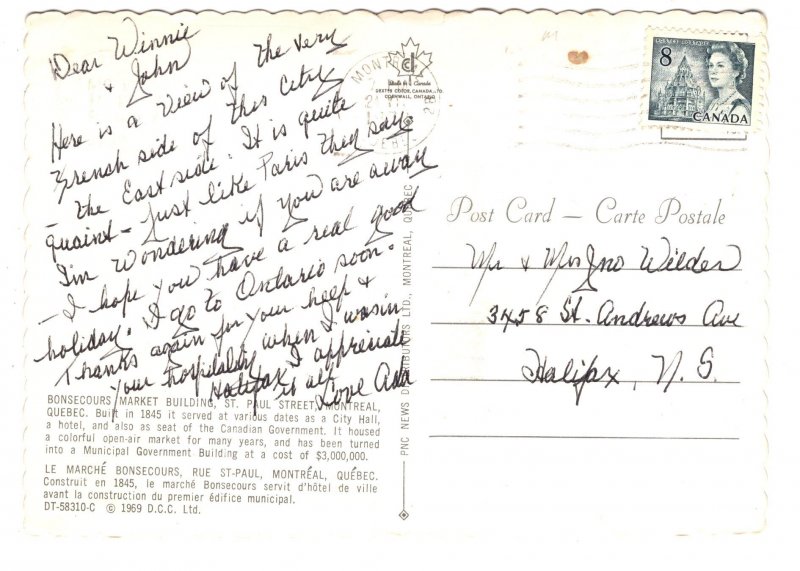 Dear Winnie
& John
Here is a view of the very
French side of this City
- the East side. It is quite
quaint - just like Paris they say.
I'm wondering if you are away
- I hope you have a real good
holiday. I go to Ontario soon.
Thanks again for your help &
your hospitality when I was in
Halifax, I appreciate
it all.
Love Ada
BONSECOURS MARKET BUILDING, ST. PAUL STREET, MONTREAL,
QUEBEC. Built in 1845 it served at various dates as a City Hall,
a hotel, and also as seat of the Canadian Government. It housed
a colorful open-air market for many years, and has been turned
into a Municipal Government Building at a cost of $3,000,000.
LE MARCHÉ BONSECOURS, RUE ST-PAUL, MONTRÉAL, QUÉBEC.
Construit en 1845, le marché Bonsecours servit d'hôtel de ville
avant la construction du premier édifice municipal.
DT-58310-C © 1969 D.C.C. Ltd.
MONTR
Made in Canada
DEXTER COLOR, CANADA,
CORNWALL, ONTARIO
PNC NEWS DISTRIBUTORS LTD., MONTREAL, QUEBEC
8
POSTES POSTAGE
CANADA
Post Card — Carte Postale
Mr & Mrs Jno Wilder
3458 St. Andrews Ave
Halifax, N.S.